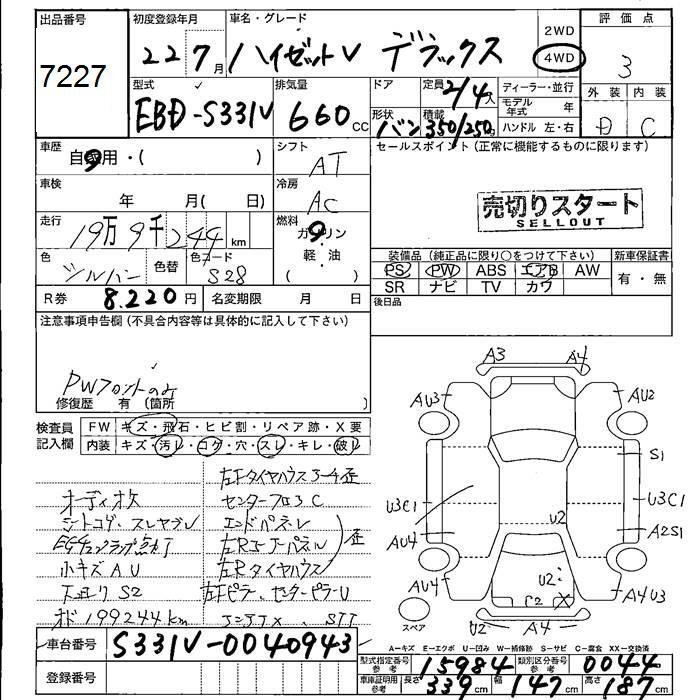 出品番号
7227
初度登録年月
22 7月
車名・グレード
ハイゼットV デラックス
2WD
4WD
評価点
3
外装 内装
D C
型式
EBD-S331V
排気量
660cc
ドア
定員 2/4人
形状 バン
積載 350/250kg
ディーラー・並行
モデル年式 年
ハンドル 左・右
車歴 自家用・( )
シフト AT
セールスポイント (正常に機能するものに限ります)
売切りスタート
SELLOUT
車検 年 月( 日)
冷房 AC
走行 19万9千244km
燃料 ガソリン
軽・油
( )
色 シルバー
色替
色コード S28
装備品 (純正品に限り○をつけて下さい)
PS PW ABS エアB AW
SR ナビ TV カワ
新車保証書
有・無
R券 8.220円
名変期限 月 日
後日品
注意事項申告欄 (不具合内容等は具体的に記入して下さい)
PWフロントのみ
修復歴 有 (箇所 )
検査員記入欄
FW キズ・飛石・ヒビ割・リペア跡・X要
内装 キズ・汚レ・コゲ・穴・スレ・キレ・破レ
左Fタイヤハウス
オーディオ欠
センターフロアC
シートコゲ・スレヤブレ
エンドパネル
EGチェックランプ点灯
左Rコーナーパネル
歪
小キズAU
左Rタイヤハウス
S2
左Fピラー、センターピラーU
199244km
車台番号 S331V-0040943
登録番号
A3 A4
AU3 AU2
S1
U3C1 U3C1
U2
AU4 A2S1
AU4 U2 A4U3
S2 X
スペア
U2 A4
A-キズ E-エクボ U-凹み W-補修跡 S-サビ C-腐食 XX-交換済
型式指定番号 参考 15984
類別区分番号 参考 0044
車庫証明用 参考
長さ 339cm 幅 147cm 高さ 187cm